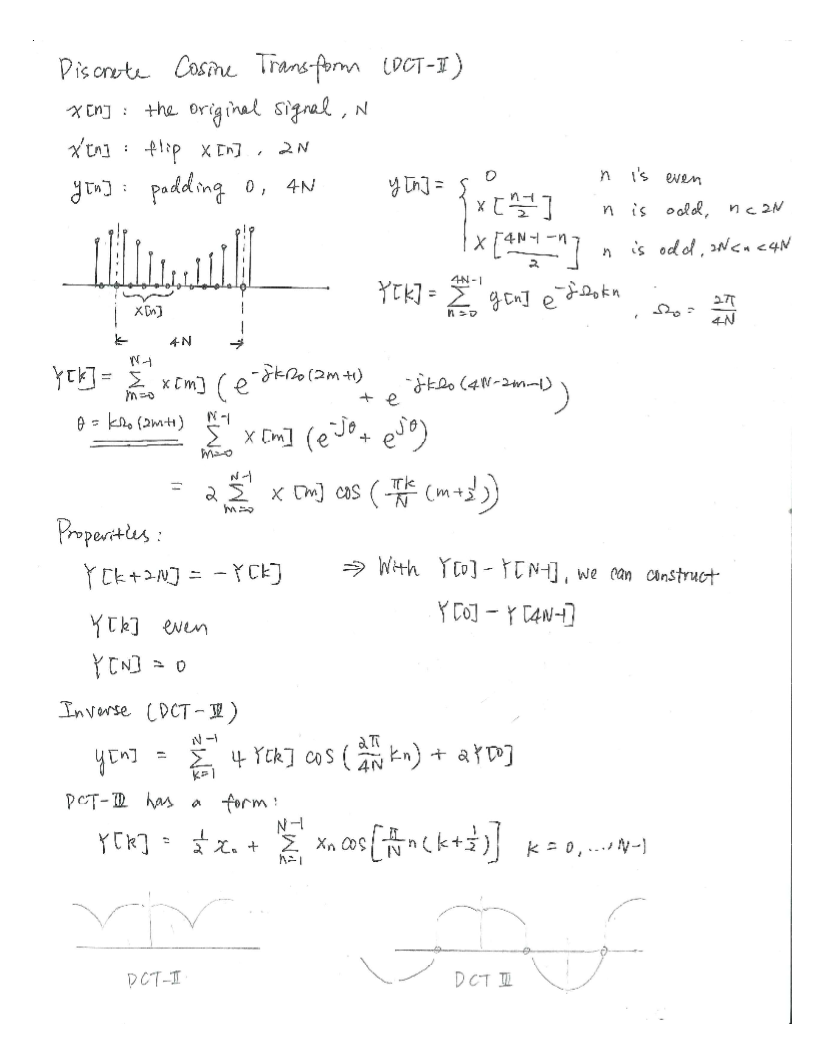 Discrete Cosine Transform (DCT-II)
x[n] : the original signal, N
x'[n] : flip x[n], 2N
y[n] : padding 0, 4N
y[n] = { 0 n is even
x[(n-1)/2] n is odd, n<2N
x[(4N-1-n)/2] n is odd, 2N<n<4N
x[n]
4N
Y[k] = Σ_{n=0}^{4N-1} y[n] e^{-jΩ₀kn}, Ω₀ = 2π/4N
Y[k] = Σ_{m=0}^{N-1} x[m] (e^{-jkΩ₀(2m+1)} + e^{-jkΩ₀(4N-2m-1)})
θ = kΩ₀(2m+1) Σ_{m=0}^{N-1} x[m] (e^{-jθ} + e^{jθ})
= 2 Σ_{m=0}^{N-1} x[m] cos(πk/N (m+½))
Properities :
Y[k+2N] = -Y[k] ⇒ With Y[0] - Y[N-1], we can construct
Y[k] even Y[0] - Y[4N-1]
Y[N] = 0
Inverse (DCT-III)
y[n] = Σ_{k=1}^{N-1} 4 Y[k] cos(2π/4N kn) + 2Y[0]
DCT-III has a form:
Y[k] = ½ x₀ + Σ_{n=1}^{N-1} xₙ cos[π/N n(k+½)] k = 0, ..., N-1
DCT-II DCT III